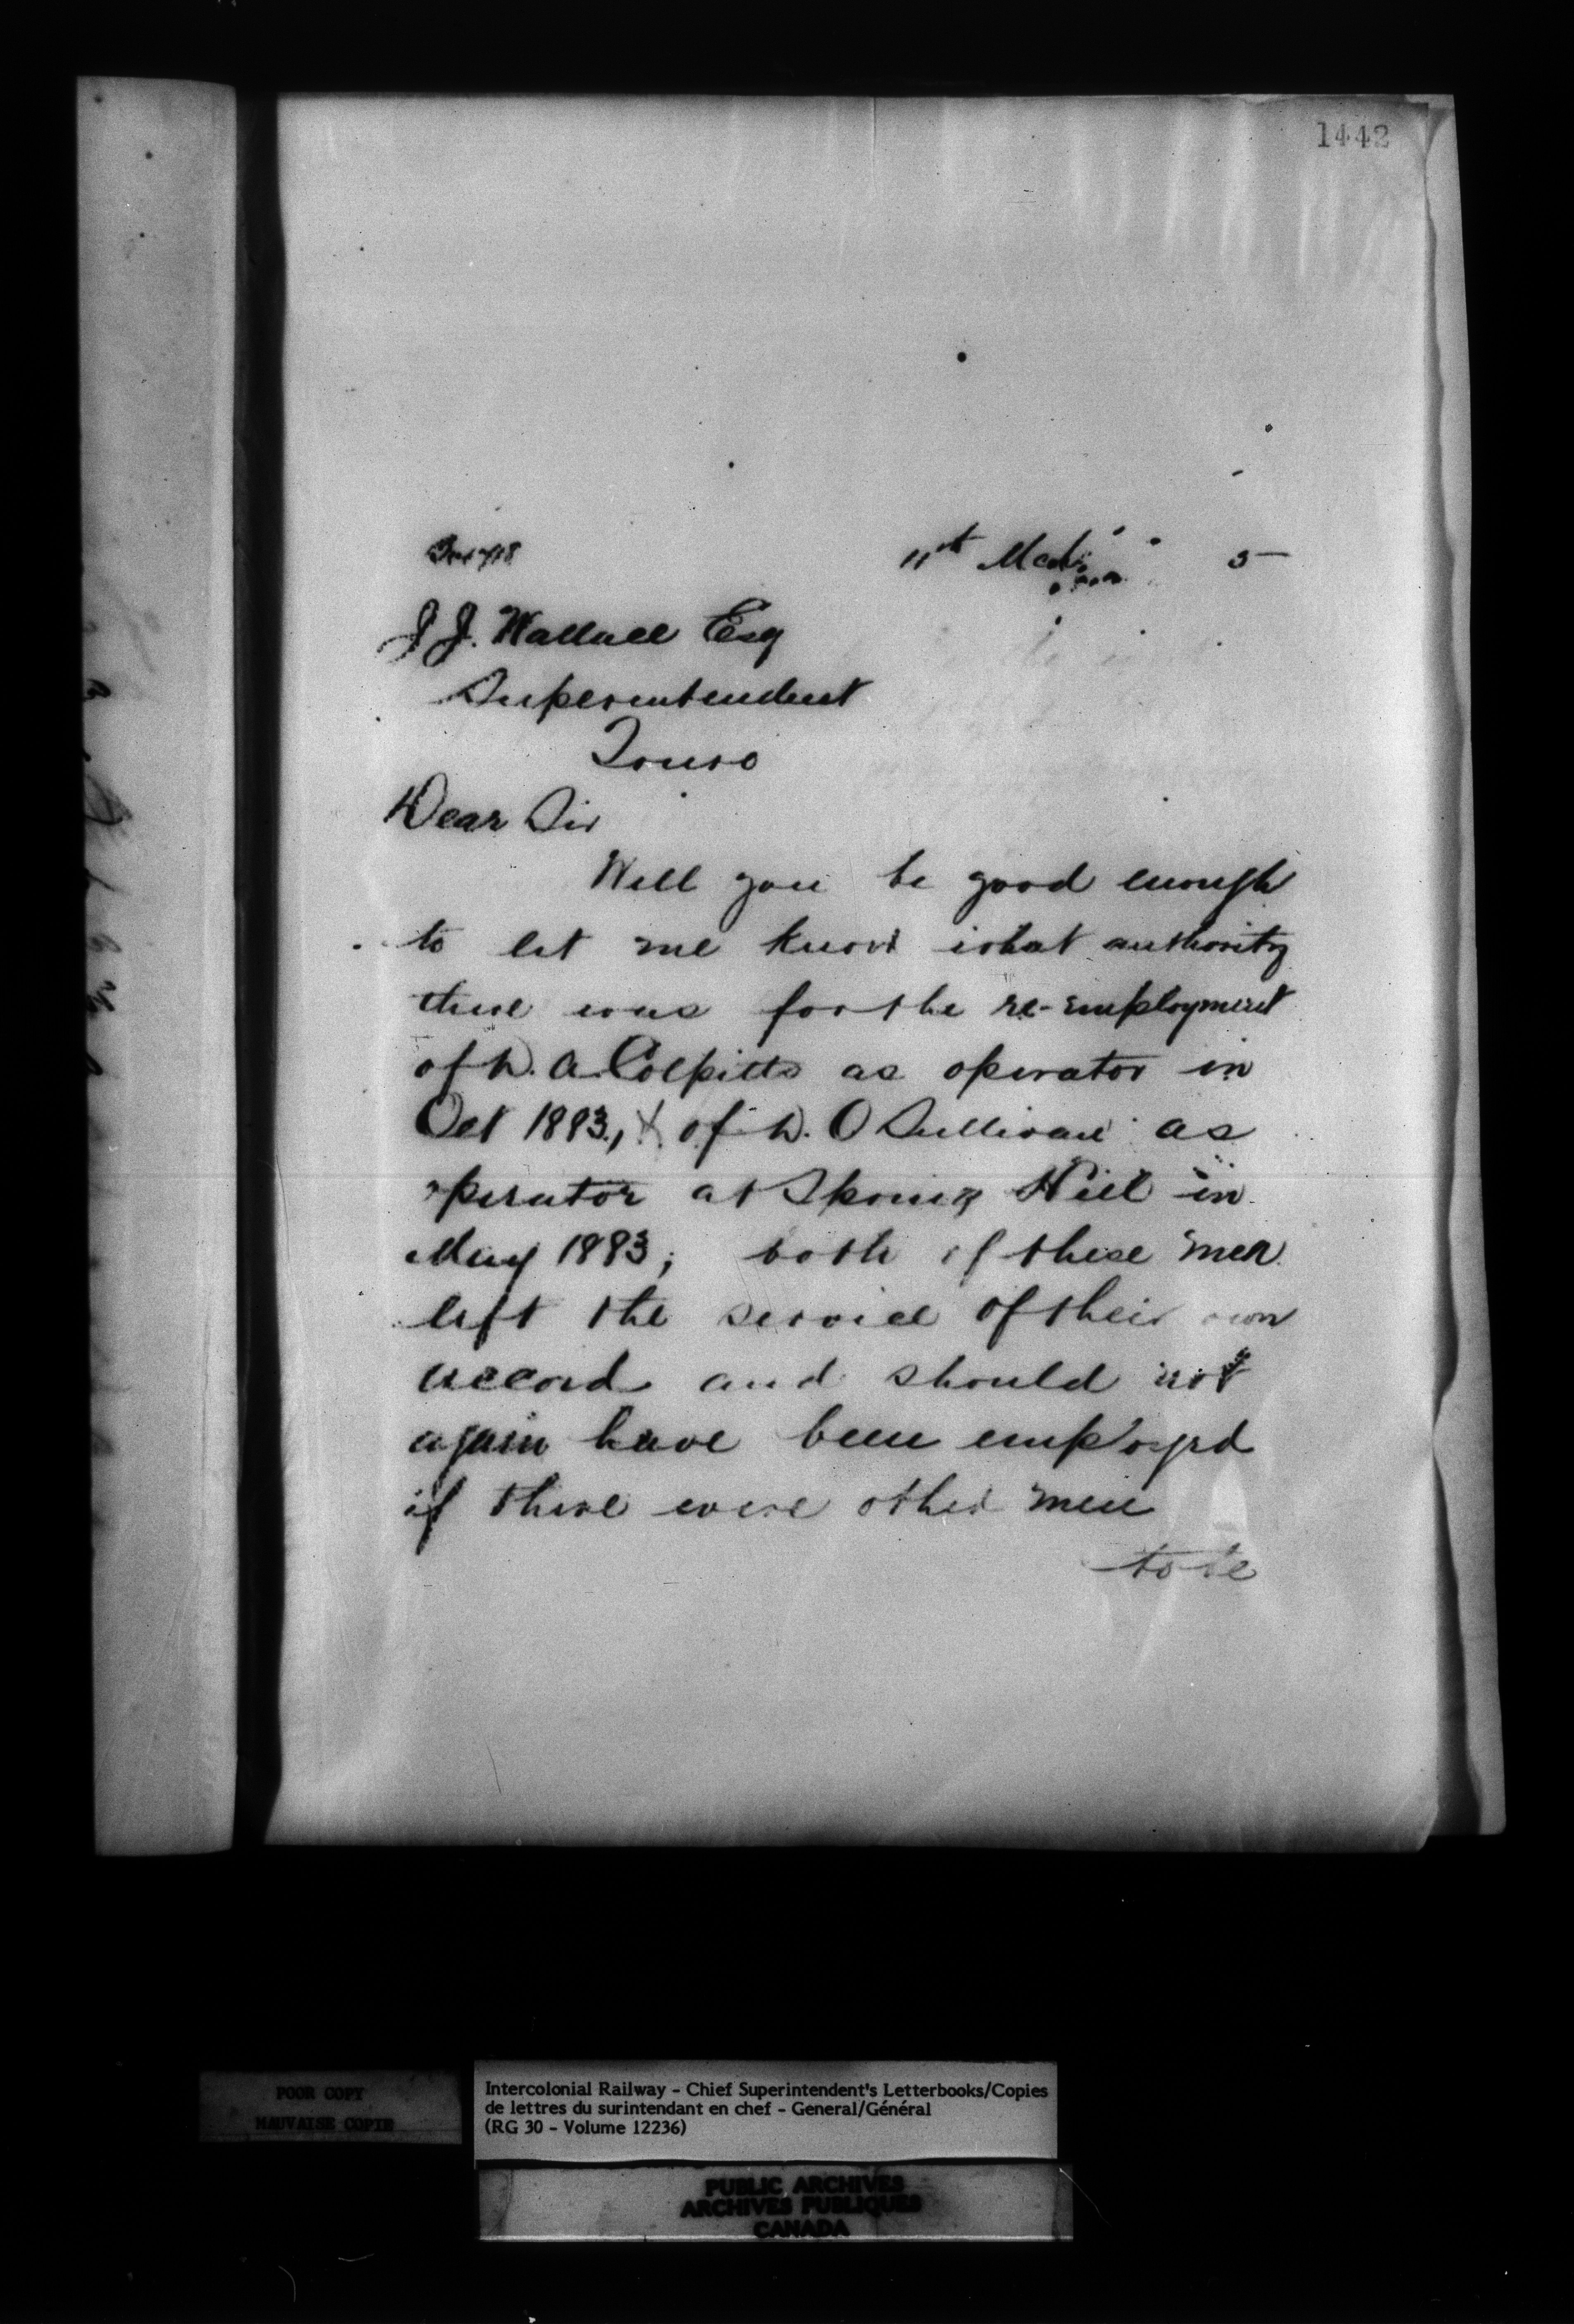 1442
11th Mch 5
J. J. Wallace Esq
Superintendent
Truro
Dear Sir
Will you be good enough
to let me know what authority
there was for the re-employment
of W. A. Colpitts as operator in
Oct 1883, & of W. O Sullivan as
operator at Spring Hill in
May 1883; both of these men
left the service of their own
accord and should not
again have been employed
if there were other men
to be
POOR COPY
MAUVAISE COPIE
Intercolonial Railway - Chief Superintendent's Letterbooks/Copies
de lettres du surintendant en chef - General/Général
(RG 30 - Volume 12236)
PUBLIC ARCHIVES
ARCHIVES PUBLIQUES
CANADA